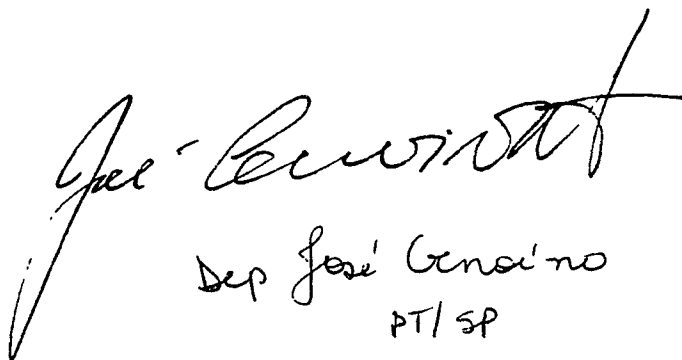 José Genoino
Dep José Genoíno
PT/SP